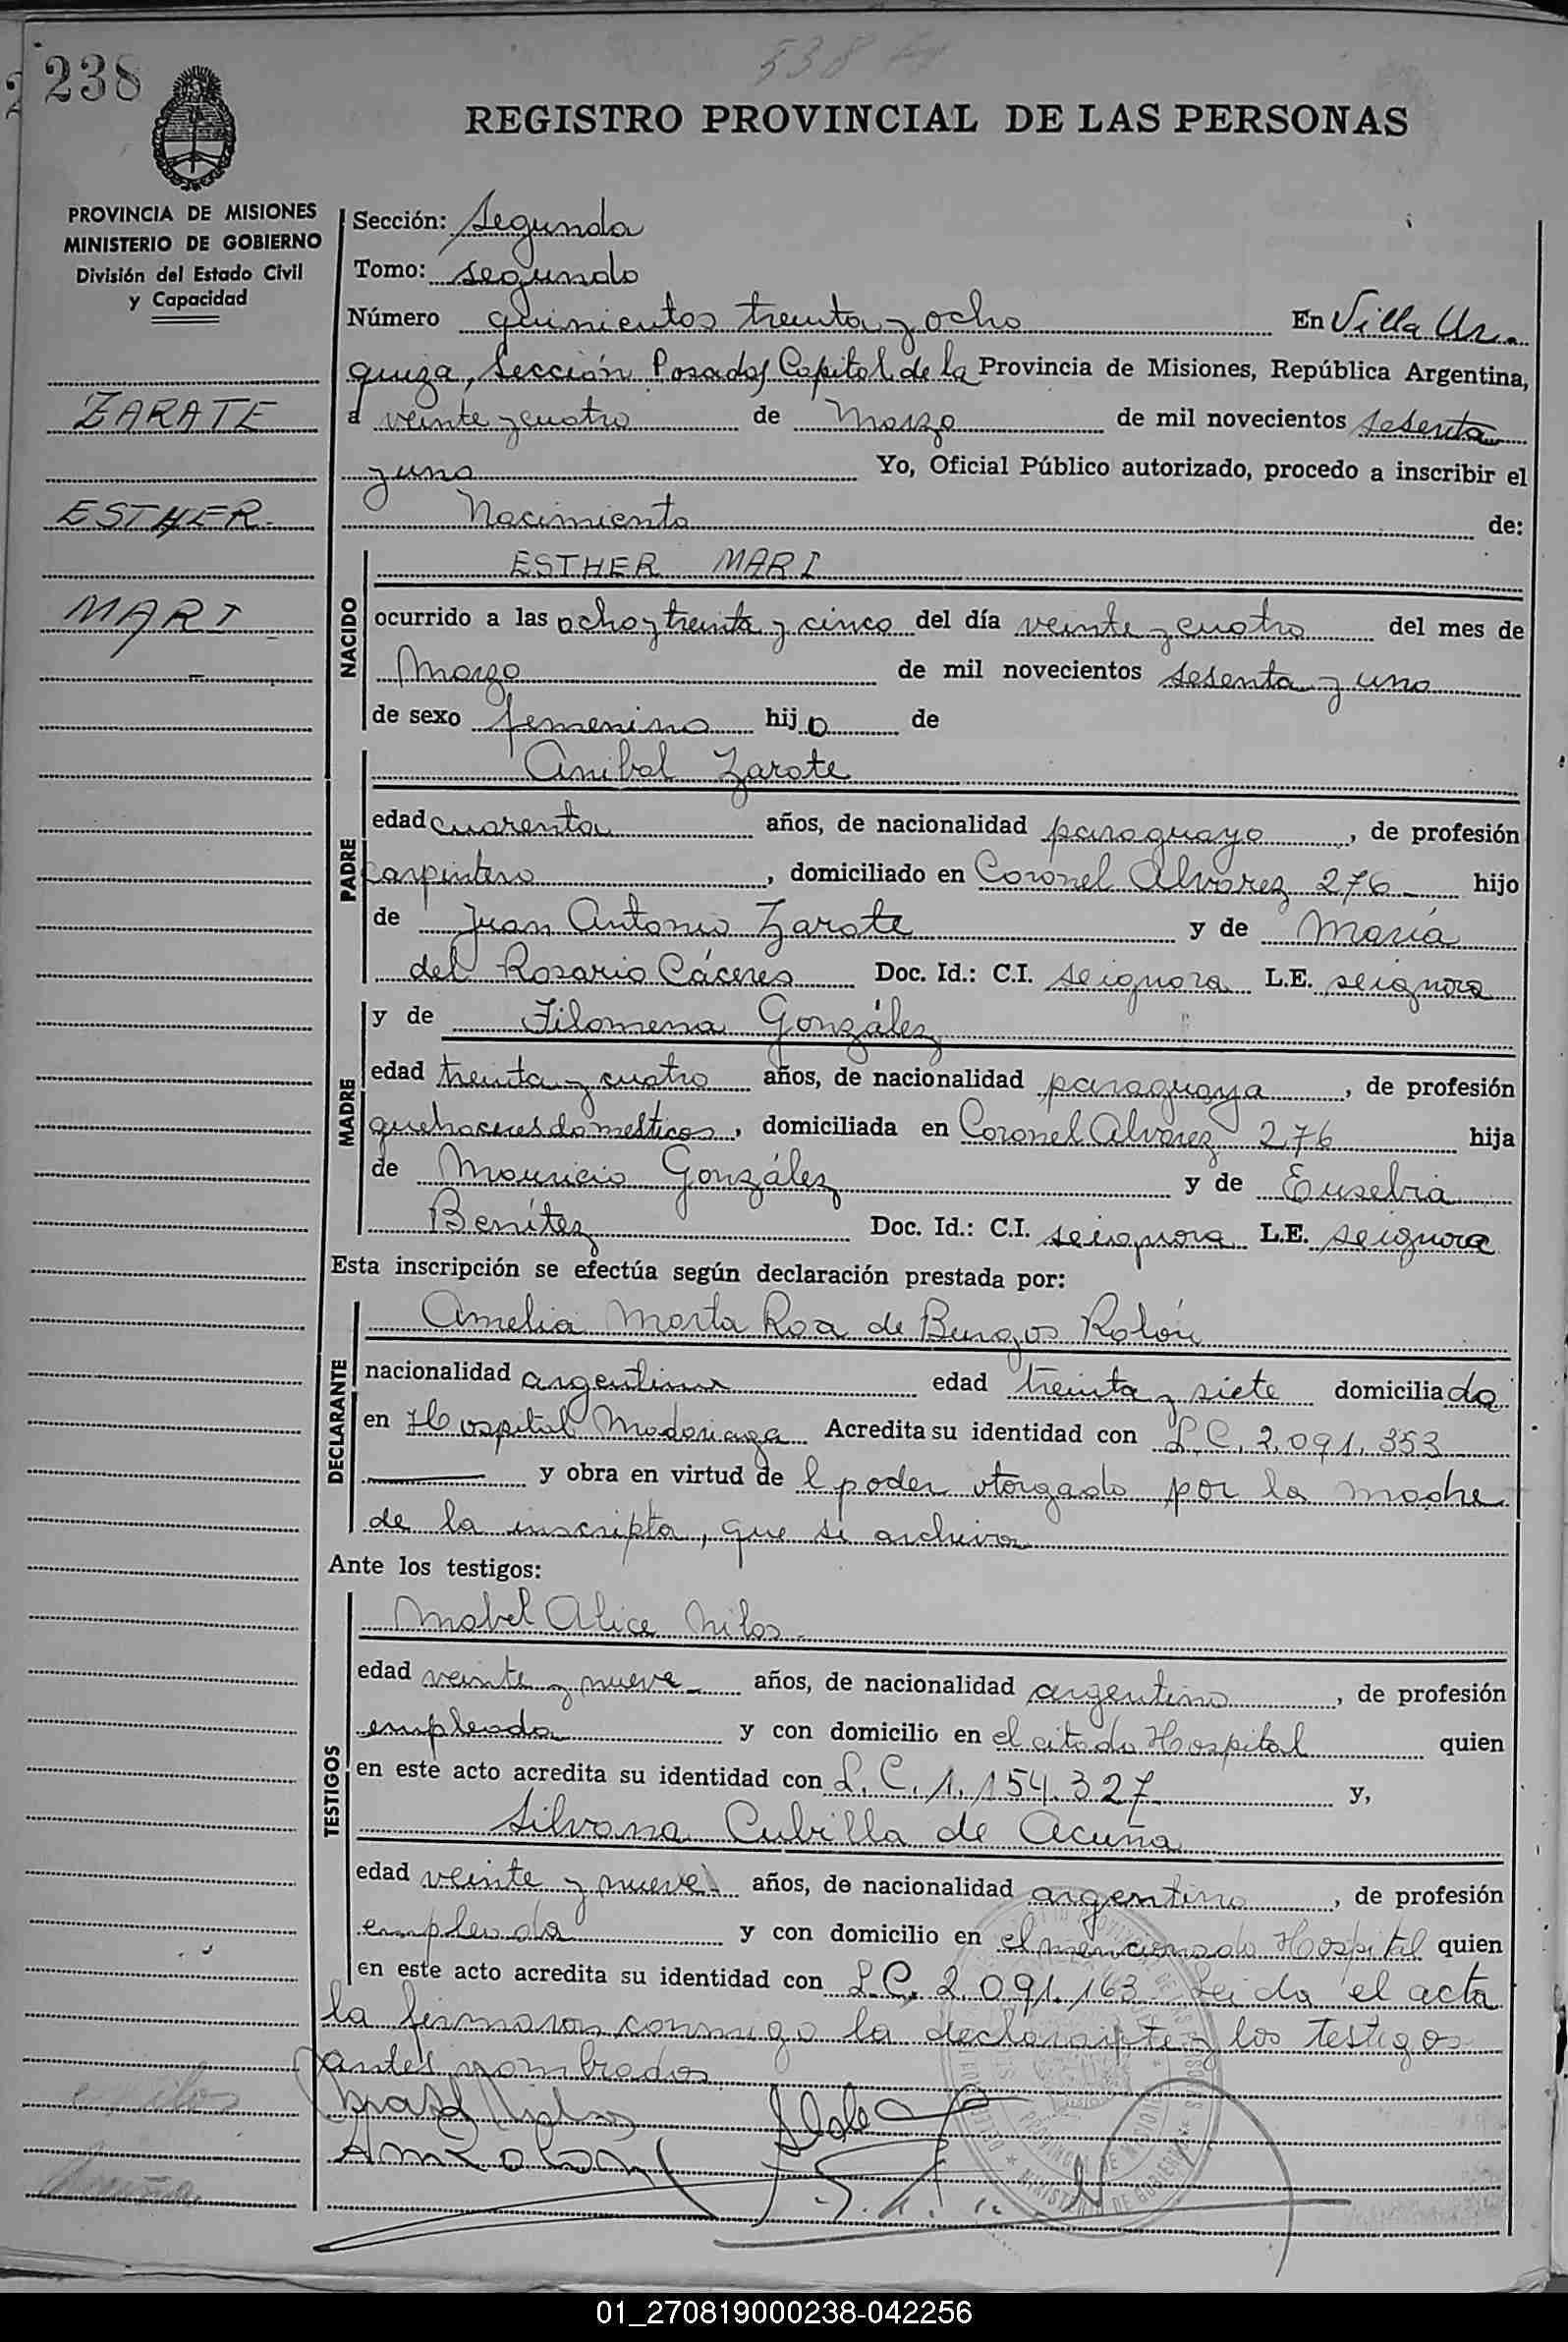 238
538
REGISTRO PROVINCIAL DE LAS PERSONAS
PROVINCIA DE MISIONES
MINISTERIO DE GOBIERNO
División del Estado Civil
y Capacidad
ZARATE
ESTHER
MARI
Sección: Segunda
Tomo: segundo
Número quinientos treinta y ocho En Villa Ur
quiza, Sección Posadas Capital de la Provincia de Misiones, República Argentina,
a veinte y cuatro de Marzo de mil novecientos sesenta
y uno Yo, Oficial Público autorizado, procedo a inscribir el
Nacimiento de:
NACIDO
ESTHER MARI
ocurrido a las ocho y treinta y cinco del día veinte y cuatro del mes de
Marzo de mil novecientos sesenta y uno
de sexo femenino hijo de
PADRE
Anibal Zarate
edad cuarenta años, de nacionalidad paraguayo, de profesión
carpintero, domiciliado en Coronel Alvarez 276 hijo
de Juan Antonio Zarate y de María
del Rosario Cáceres Doc. Id.: C.I. se ignora L.E. se ignora
MADRE
y de Filomena González
edad treinta y cuatro años, de nacionalidad paraguaya, de profesión
quehaceres domesticos, domiciliada en Coronel Alvarez 276 hija
de Mauricio González y de Eusebia
Benítez Doc. Id.: C.I. se ignora L.E. se ignora
Esta inscripción se efectúa según declaración prestada por:
DECLARANTE
Amelia Marta Roa de Burgos Rolón
nacionalidad argentina edad treinta y siete domiciliada
en Hospital Madariaga Acredita su identidad con L.C. 2.091.353
y obra en virtud de l poder otorgado por la madre
de la inscripta, que se archiva
Ante los testigos:
TESTIGOS
Mabel Alice
edad veinte y nueve años, de nacionalidad argentina, de profesión
empleada y con domicilio en el citado Hospital quien
en este acto acredita su identidad con L.C. 1.154.327 y,
Silvana Cubilla de Acuña
edad veinte y nueve años, de nacionalidad argentina, de profesión
empleada y con domicilio en el mencionado Hospital quien
en este acto acredita su identidad con L.C. 2.091.163 Leida el acta
la firmaron conmigo la declarante y los testigos
antes nombrados
01_270819000238-042256